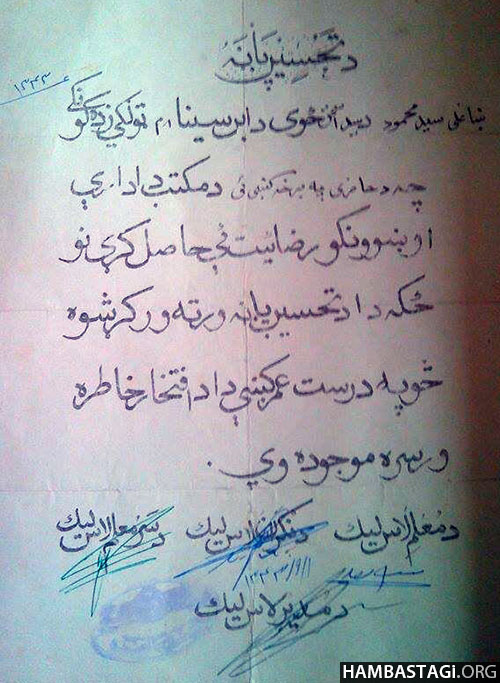 د تحسین پاڼه
۱۳۴۳
ښاغلی سید محمود د سید ځوی د ابن سینا د تولګی زده کوونکی
چه د حاضری په برخه کښی ئی د مکتب د اداری
او ښوونکو رضائیت ئی حاصل کړی نو
ځکه دا د تحسین پاڼه ورته ورکړ شوه
څو په درست عمر کښی دا د افتخار خاطره
ورسره موجوده وی.
د معلم لاس لیک د نګران لاس لیک د سرمعلم لاس لیک
۱۳۴۳/۹/۱
د مدیر لاس لیک
HAMBASTAGI.ORG